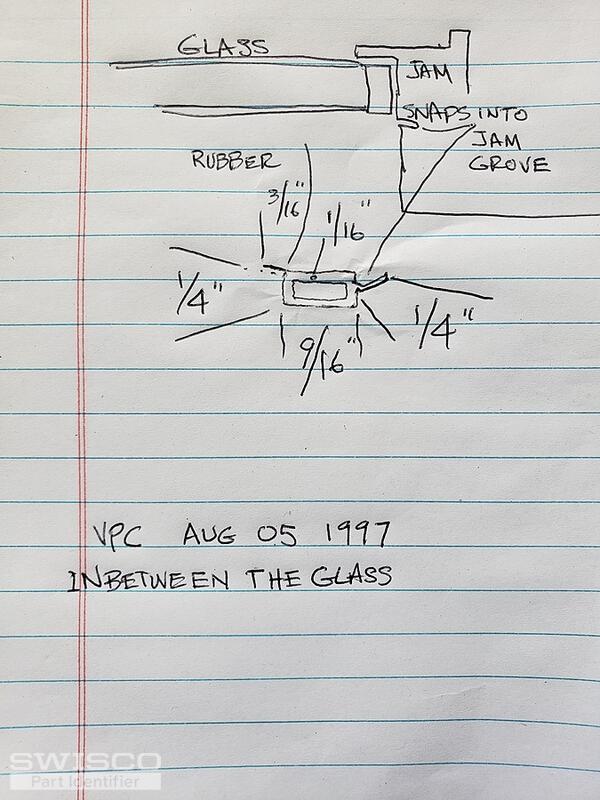 GLASS
JAM
SNAPS INTO
JAM
GROVE
RUBBER
3/16"
1/16"
1/4"
1/4"
9/16"
VPC AUG 05 1997
INBETWEEN THE GLASS
SWISCO
Part Identifier